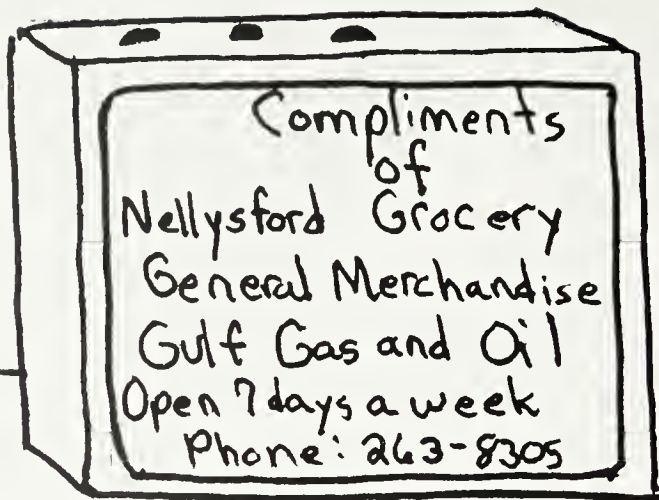 Compliments
of
Nellysford Grocery
General Merchandise
Gulf Gas and Oil
Open 7 days a week
Phone: 263-8305